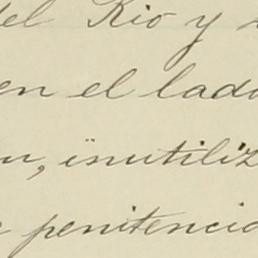 del Rio y
en el lado
n, inutiliz
penitencia